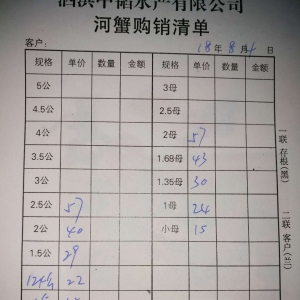 泗洪中储水产有限公司
河蟹购销清单
客户: 18年8月 日
规格 单价 数量 金额 规格 单价 数量 金额
5公 3母
4.5公 2.5母
4公 2母 57
3.5公 1.68母 43
3公 1.35母 30
2.5公 57 1母 24
2公 40 小母 15
1.5公 29
22
一联 存根(黑)
二联 客户(兰)